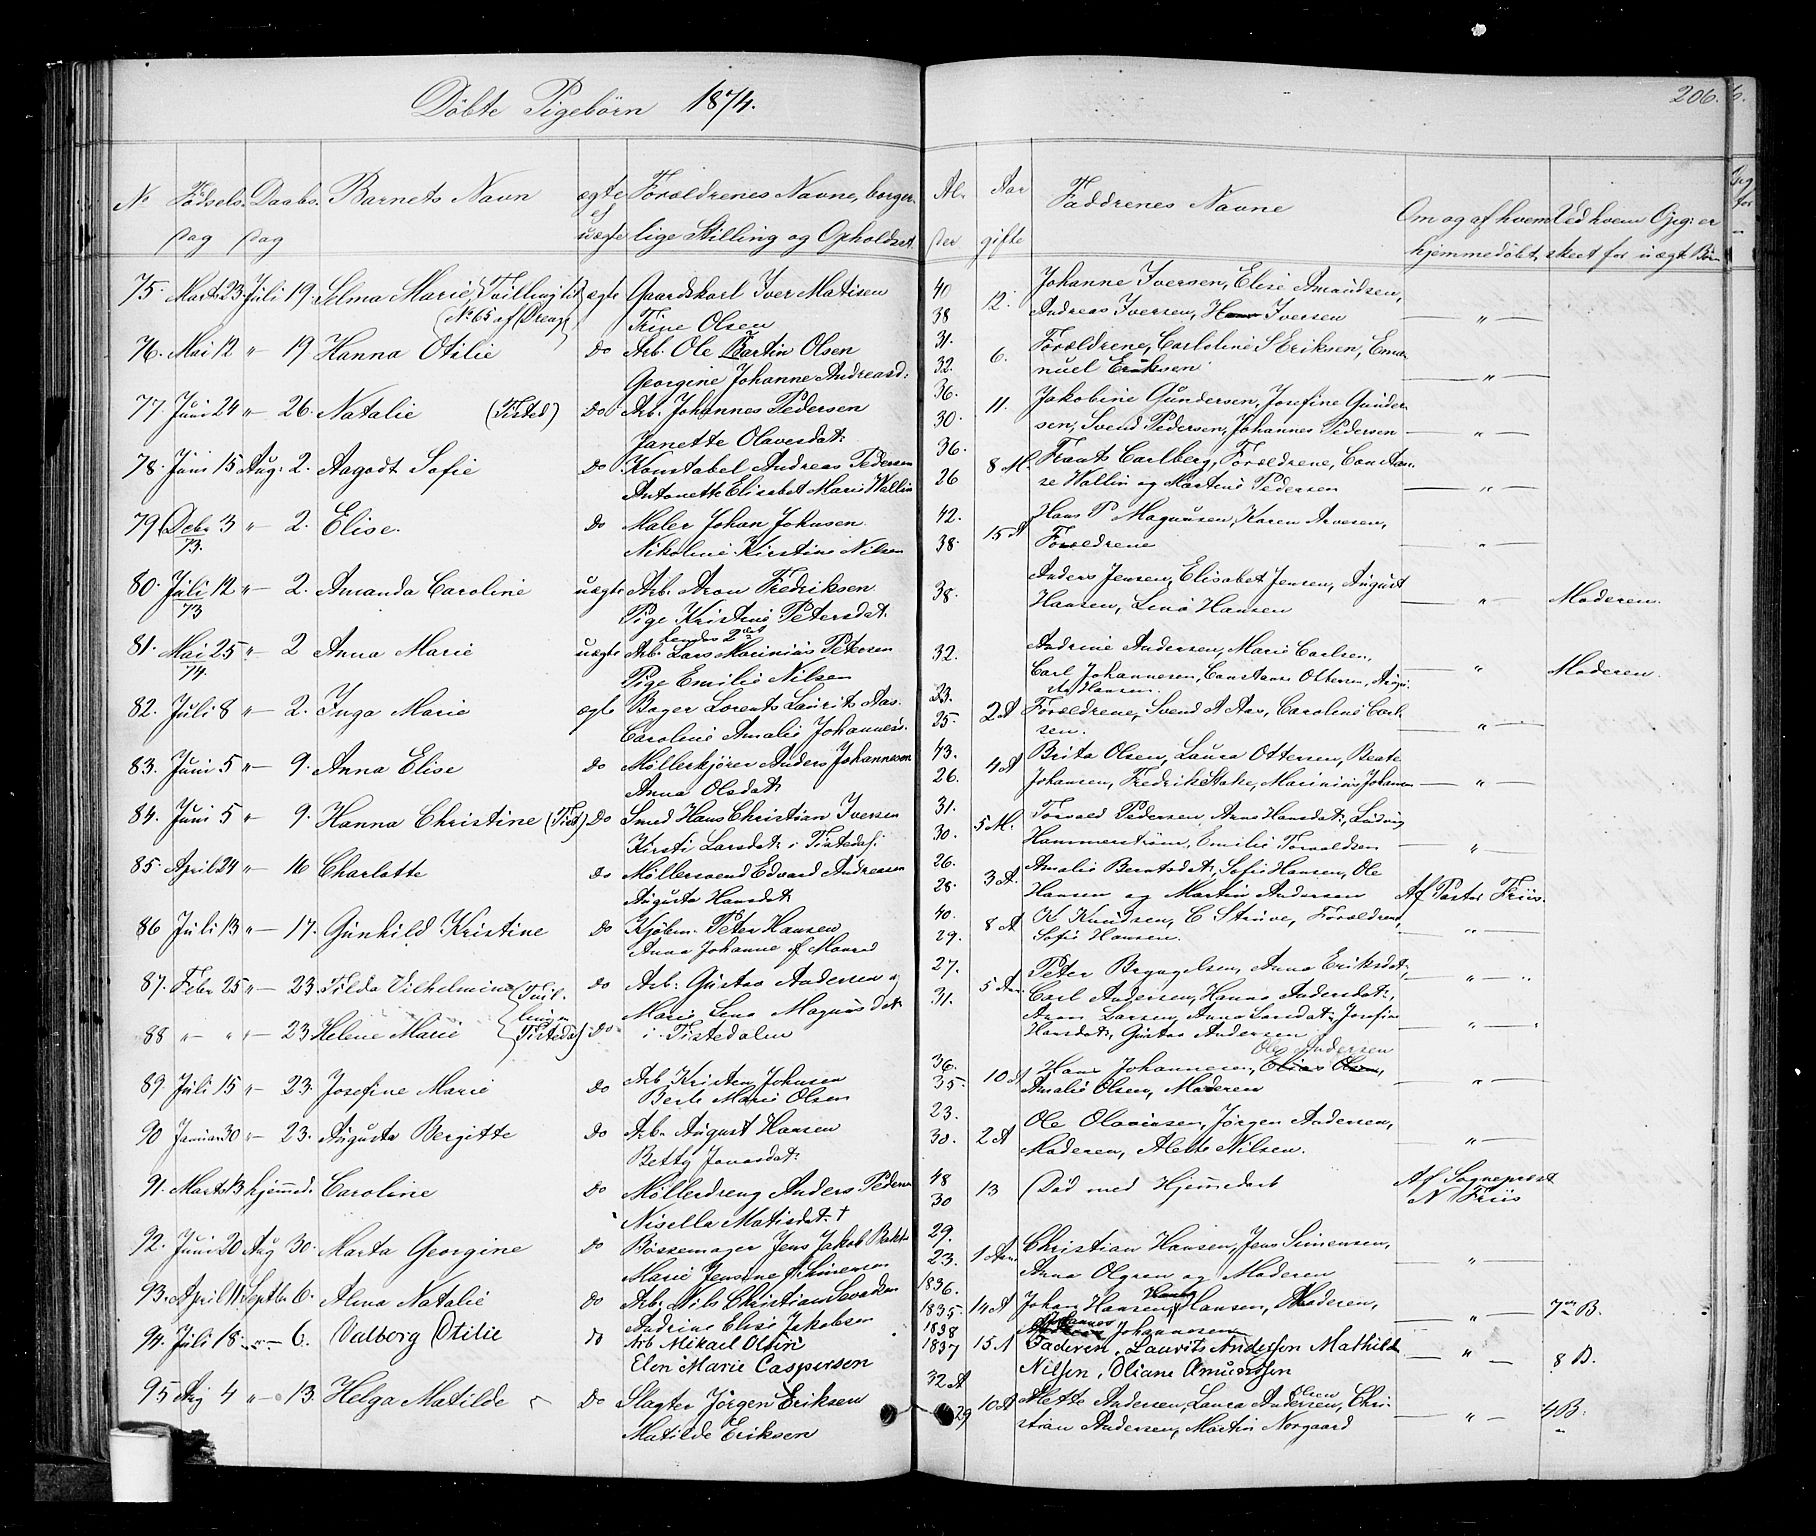 Döbte Pigebörn 1874.
206.
No Födsels- Daabs- Barnets Navn ægte Forældrenes Navne, borger- Al- Aar Faddrenes Navne Om og af hvem Ved hvem Opg: er
dag dag uægte lige Stilling og Opholdst. der gifte hjemmedöbt, skeet for uægte Börn
75. Marts 23 Juli 19. Selma Marie (Tvilling til ægte Gaardskarl Iver Matisen 40 12. Johanne Iversen, Elise Amundsen,
(No 65 af Drenge) Trine Olsen 38 Andreas Iversen, Hans Iversen — " —
76. Mai 12 " 19 Hanna Otilie Do Arb. Ole Martin Olsen 31. 6. Forældrene, Carloline S Eriksen, Ema-
Georgine Johanne Andreasd: 32. nuel Eriksen — " —
77. Juni 24 " 26. Natalie (Tisted) Do Arb. Johannes Pedersen 36. 11. Jakobine Gundersen, Josefine Gunder-
Janette Olavesdat: 30. sen, Svend Pedersen, Johannes Pedersen — " —
78. Juni 15 Aug: 2. Aagodt Sofie Do Konstabel Andreas Pedersen 36. 8 M. Frants Carlberg, Forældrene, Constan-
Antonette Elisabet Marie Wallin 26 se Wallin og Martine Pedersen — " —
79 Debr 3 " 2. Elise. Do Maler Johan Johnsen 42. 15 A Hans P Magnusen, Karen Arvesen,
73. Nikoline Kirstine Nilsen 38. Forældrene — " —
80. Juli 12 " 2. Amanda Caroline uægte Arb. Aron Fredriksen Anders Jensen, Elisabet Jensen, August
73 Pige Kristine Petersdat. 38. Hansen, Lina Hansen — " — Moderen.
81. Mai 25 " 2 Anna Marie uægte Arb. Lars Marinius Petersen 32. Andrine Andersen, Marie Carlsen,
74. Pige Emilie Nilsen Carl Johannesen, Constanse Ottersen, Augu- — " — Moderen.
sta Hansen.
82. Juli 8 " 2. Inga Marie ægte Bager Lorents Laurits Aas. 23. 2 A Forældrene, Svend A Aas, Caroline Carl-
Caroline Amalie Johannes. 25. sen. — " —
83. Juni 5 " 9. Anna Elise Do Möllerkjörer Anders Johannesen 43. 4 A Brita Olsen, Laura Ottersen, Beate
Anna Olsdat. 26. Johansen, Fredrik Stake, Marinius Johansen — " —
84. Juni 5 " 9. Hanna Christine (Tist) Do Smed Hans Christian Iversen 31. 5 M. Torvald Pedersen, Anne Hansdat:, Ludvig
Kirsti Larsdat: i Tistedaf: 30. Hammerström, Emilie Torvaldsen — " —
85. April 24 " 16 Charlotte Do Möllersvend Edvard Andreasen 26. 3 A. Amalie Berntsdat:, Sofie Hansen, Ole
Augusta Hansdat 28. Hansen og Martin Andersen Af Pastor Friis.
86 Juli 13 " 17. Gunhild Kristine Do Kjöbm. Peter Hansen 40. 8 A K Knudsen, C Struve, Forældrene,
Anna Johanne f Monrad 29. Sofie Hansen. — " —
87. Febr 25 " 23 Tilda Vilhelmine (Tvil- Do Arb. Gustav Andersen og 27. 5 Aar Peter Bryngelsen, Anna Eriksdat:, — " —
lingen Marie Lena Magnusdat. 31. Carl Andersen, Hanna Andersdat:,
88 " " " 23 Helene Marie Tistedaf) Do i Tistedalen Aron Larsen, Anna Larsdat: Josefine
Hansdat:, Gustav Andersen — " —
89. Juli 15 " 23. Josefine Marie Do Arb. Kristen Johnsen 36. 10 A Hans Johannesen, Ole Andersen
Berte Marie Olsen 35. Amalie Olsen, Moderen — " —
90 Januar 30 " 23. Augusta Bergitte Do Arb. August Hansen 23. 2 A Ole Olavinsen, Jörgen Andersen,
Betty Jonasdat: 30. Moderen, Alette Nilsen. — " —
91. Marts 13 hjemmed. Caroline Do Möllerdreng Anders Pedersen 48 13 (Död med Hjemmedaab Af Sogneprest
Nisella Matisdat: † 30 N Friis
92. Juni 20 Aug 30. Marta Georgine Do Bössemager Jens Jakob Bakke 29. 1 Aar Christian Hansen, Jens Simensen,
Marie Jensine f Simensen 23. Anna Olgren og Moderen — " —
93. April 11 Septbr 6. Alma Natalie Do Arb. Nils Christian 1836. 14 A Johan Hansen, Hans Hansen, Moderen,
Andrine Elise Jakobsen 1835 Johannes Johannesen — " — 7de B.
94. Juli 18. " 6. Valborg Otilie do Arb Mikael Olsen 1838 15 A Faderen, Laurits Anderssen Mathilde
Elen Marie Caspersen 1837 Nilssen, Oliane Amundssen — " — 8 B.
95 Aug 4 " 13. Helga Matilde Do Slagter Jörgen Eriksen 32 A 10 A Mette Andersen, Laura Andersen, Olsen Chri-
Matilde Eriksen 29 stian Andersen, Martin Norgaard — " — 4 B.